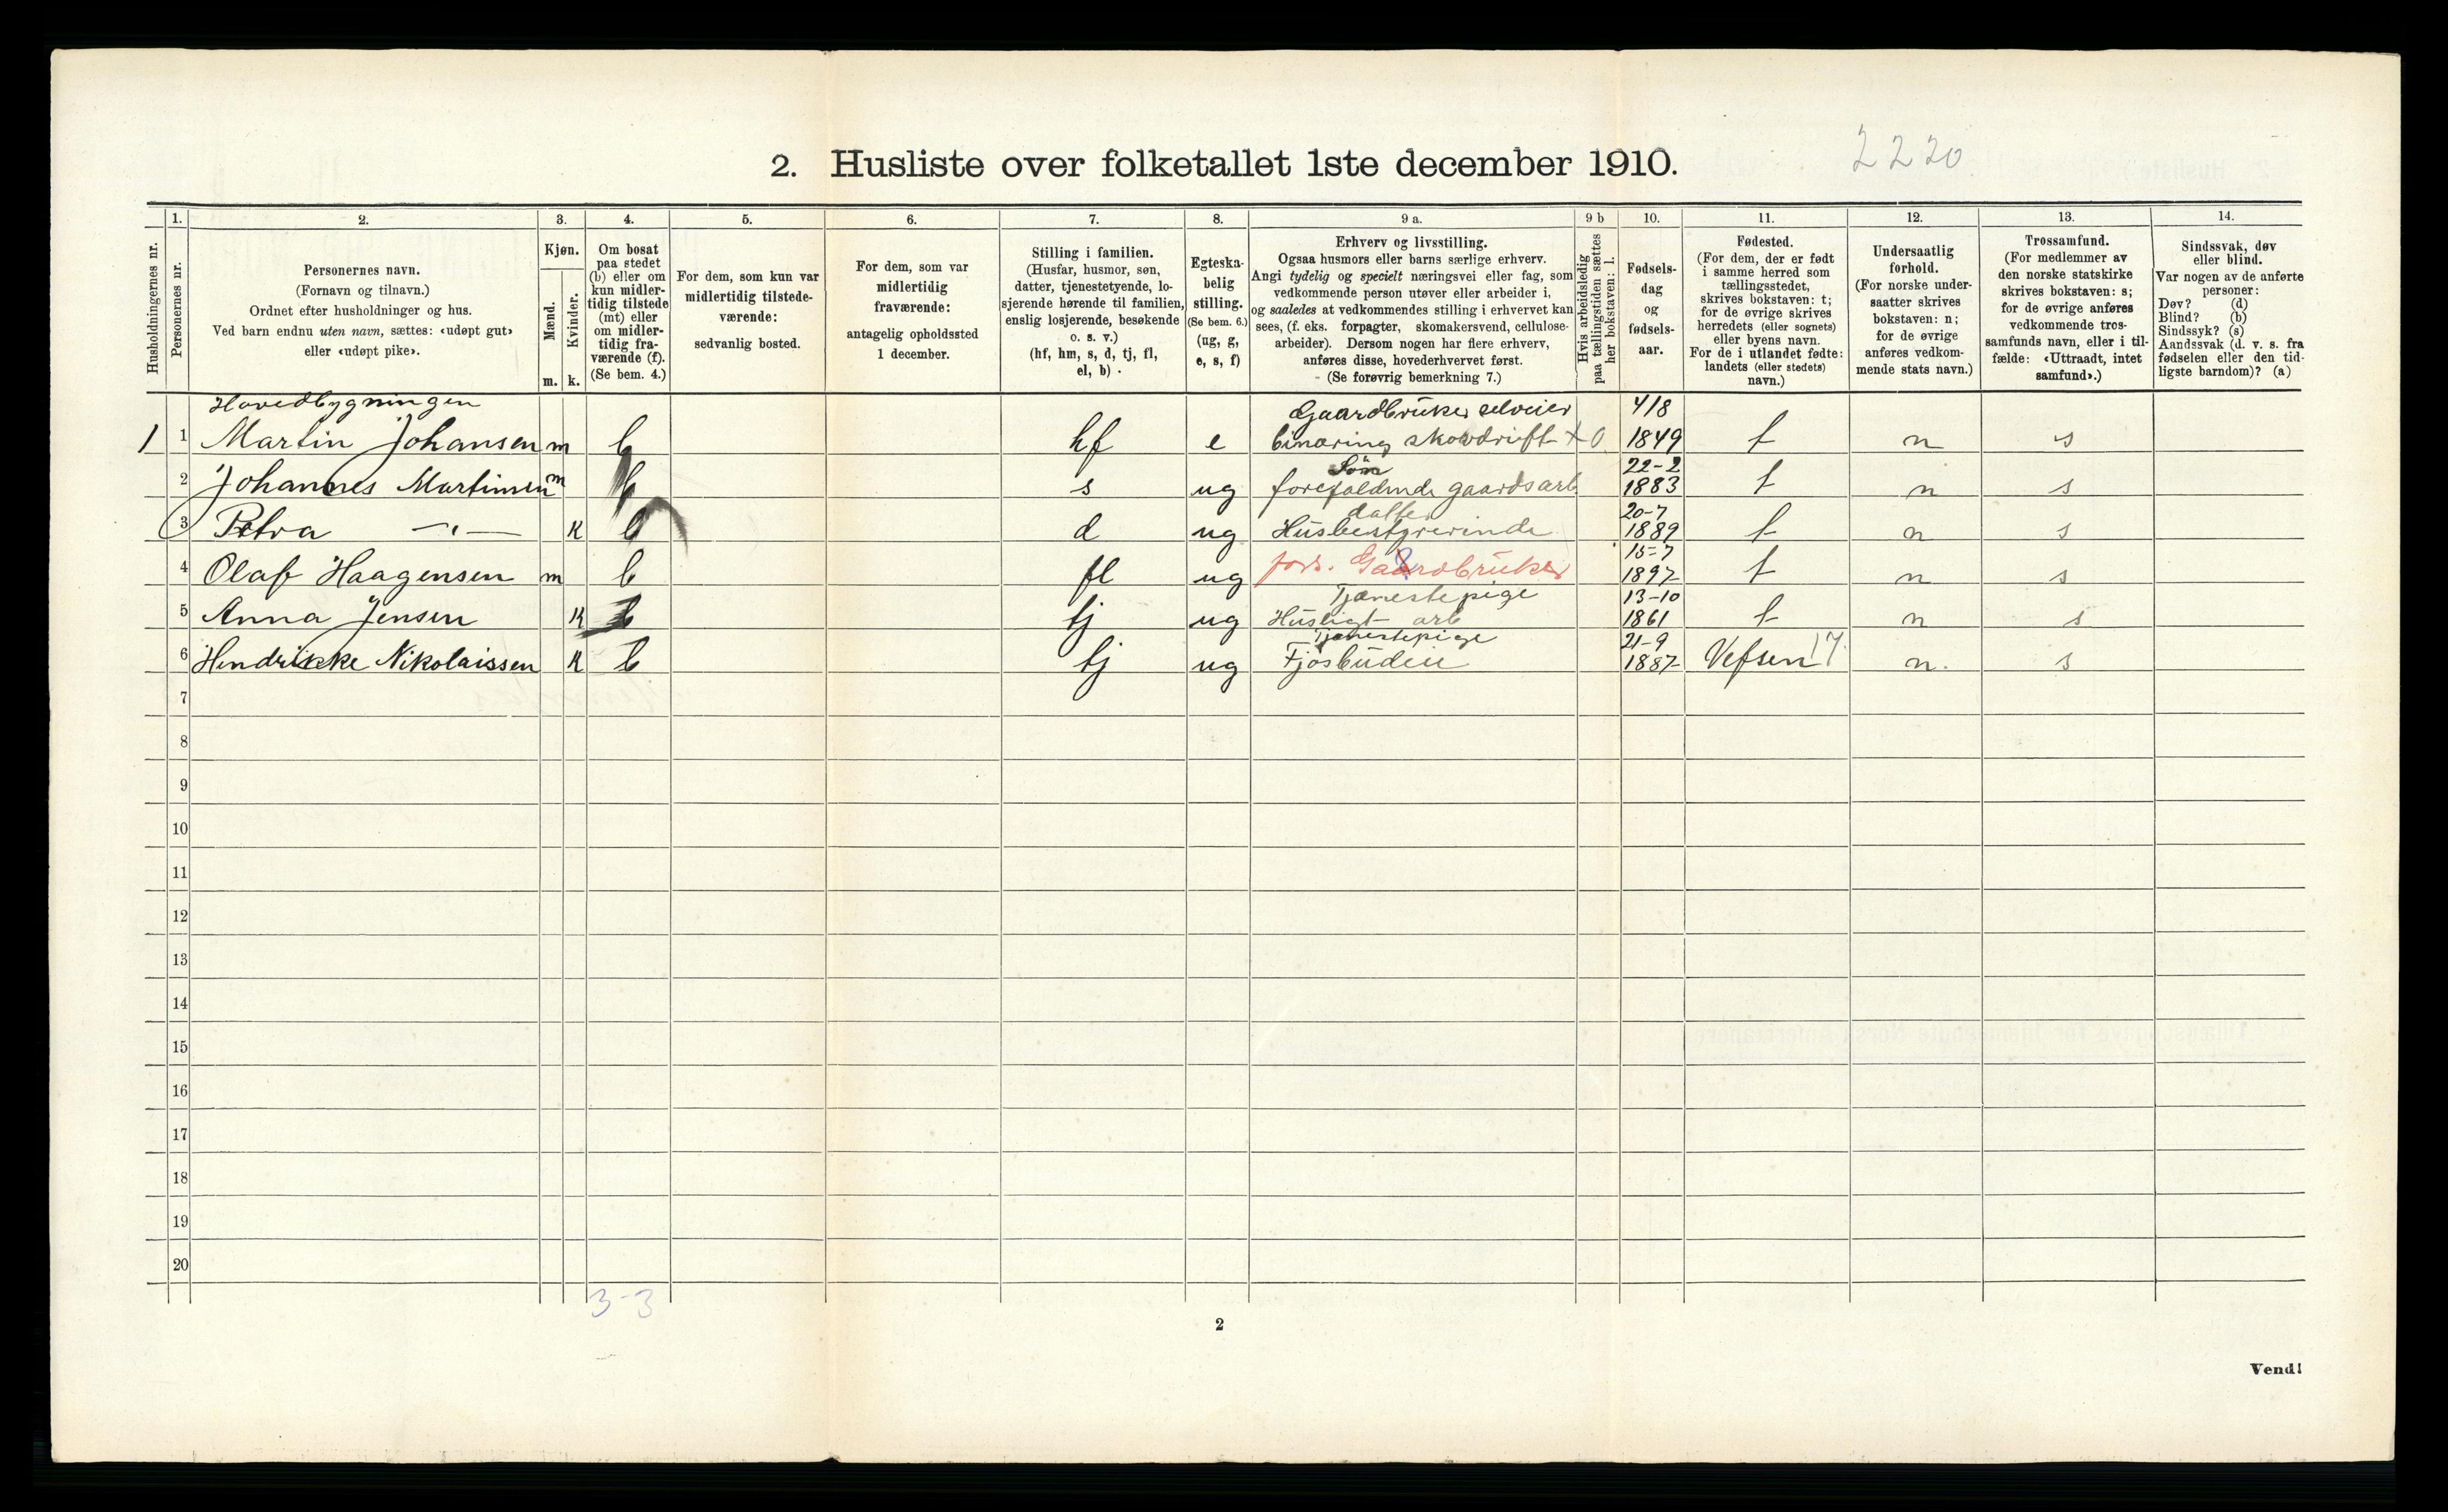 2220
2. Husliste over folketallet 1ste december 1910.
Husholdningernes nr.
1. Personernes nr.
2. Personernes navn. (Fornavn og tilnavn.) Ordnet efter husholdninger og hus. Ved barn endnu uten navn, sættes: «udøpt gut» eller «udøpt pike».
3. Kjøn. Mænd. m. Kvinder. k.
4. Om bosat paa stedet (b) eller om kun midlertidig tilstede (mt) eller om midlertidig fraværende (f). (Se bem. 4.)
5. For dem, som kun var midlertidig tilstedeværende: sedvanlig bosted.
6. For dem, som var midlertidig fraværende: antagelig opholdssted 1 december.
7. Stilling i familien. (Husfar, husmor, søn, datter, tjenestetyende, losjerende hørende til familien, enslig losjerende, besøkende o. s. v.) (hf, hm, s, d, tj, fl, el, b)
8. Egteskabelig stilling. (Se bem. 6.) (ug, g, e, s, f)
9 a. Erhverv og livsstilling. Ogsaa husmors eller barns særlige erhverv. Angi tydelig og specielt næringsvei eller fag, som vedkommende person utøver eller arbeider i, og saaledes at vedkommendes stilling i erhvervet kan sees, (f. eks. forpagter, skomakersvend, cellulosearbeider). Dersom nogen har flere erhverv, anføres disse, hovederhvervet først. (Se forøvrig bemerkning 7.)
9 b Hvis arbeidsledig paa tællingstiden sættes her bokstaven: l.
10. Fødselsdag og fødselsaar.
11. Fødested. (For dem, der er født i samme herred som tællingsstedet, skrives bokstaven: t; for de øvrige skrives herredets (eller sognets) eller byens navn. For de i utlandet fødte: landets (eller stedets) navn.)
12. Undersaatlig forhold. (For norske undersaatter skrives bokstaven: n; for de øvrige anføres vedkommende stats navn.)
13. Trossamfund. (For medlemmer av den norske statskirke skrives bokstaven: s; for de øvrige anføres vedkommende trossamfunds navn, eller i tilfælde: «Uttraadt, intet samfund».)
14. Sindssvak, døv eller blind. Var nogen av de anførte personer: Døv? (d) Blind? (b) Sindssyk? (s) Aandssvak (d. v. s. fra fødselen eller den tidligste barndom)? (a)
Hovedbygningen
1 1 Martin Johansen m b hf e Gaardbruker selveier binæring skovdrift + 0 4/8 1849 t n s
2 Johannes Martinsen m b s ug Søn forefaldende gaardsarb 22-2 1883 t n s
3 Petra -"- K b d ug datter Husbestyrerinde 20-7 1889 t n s
4 Olaf Haagensen m b fl ug fors. Gaardbruker 15-7 1897 t n s
5 Anna Jensen K b tj ug Tjænestepige Husligt arb 13-10 1861 t n s
6 Hendrikke Nikolaissen K b tj ug Tjenestepige Fjøsbudeie 21-9 1887 Vefsen 17 n. s
7
8
9
10
11
12
13
14
15
16
17
18
19
20
3-3
2
Vend!